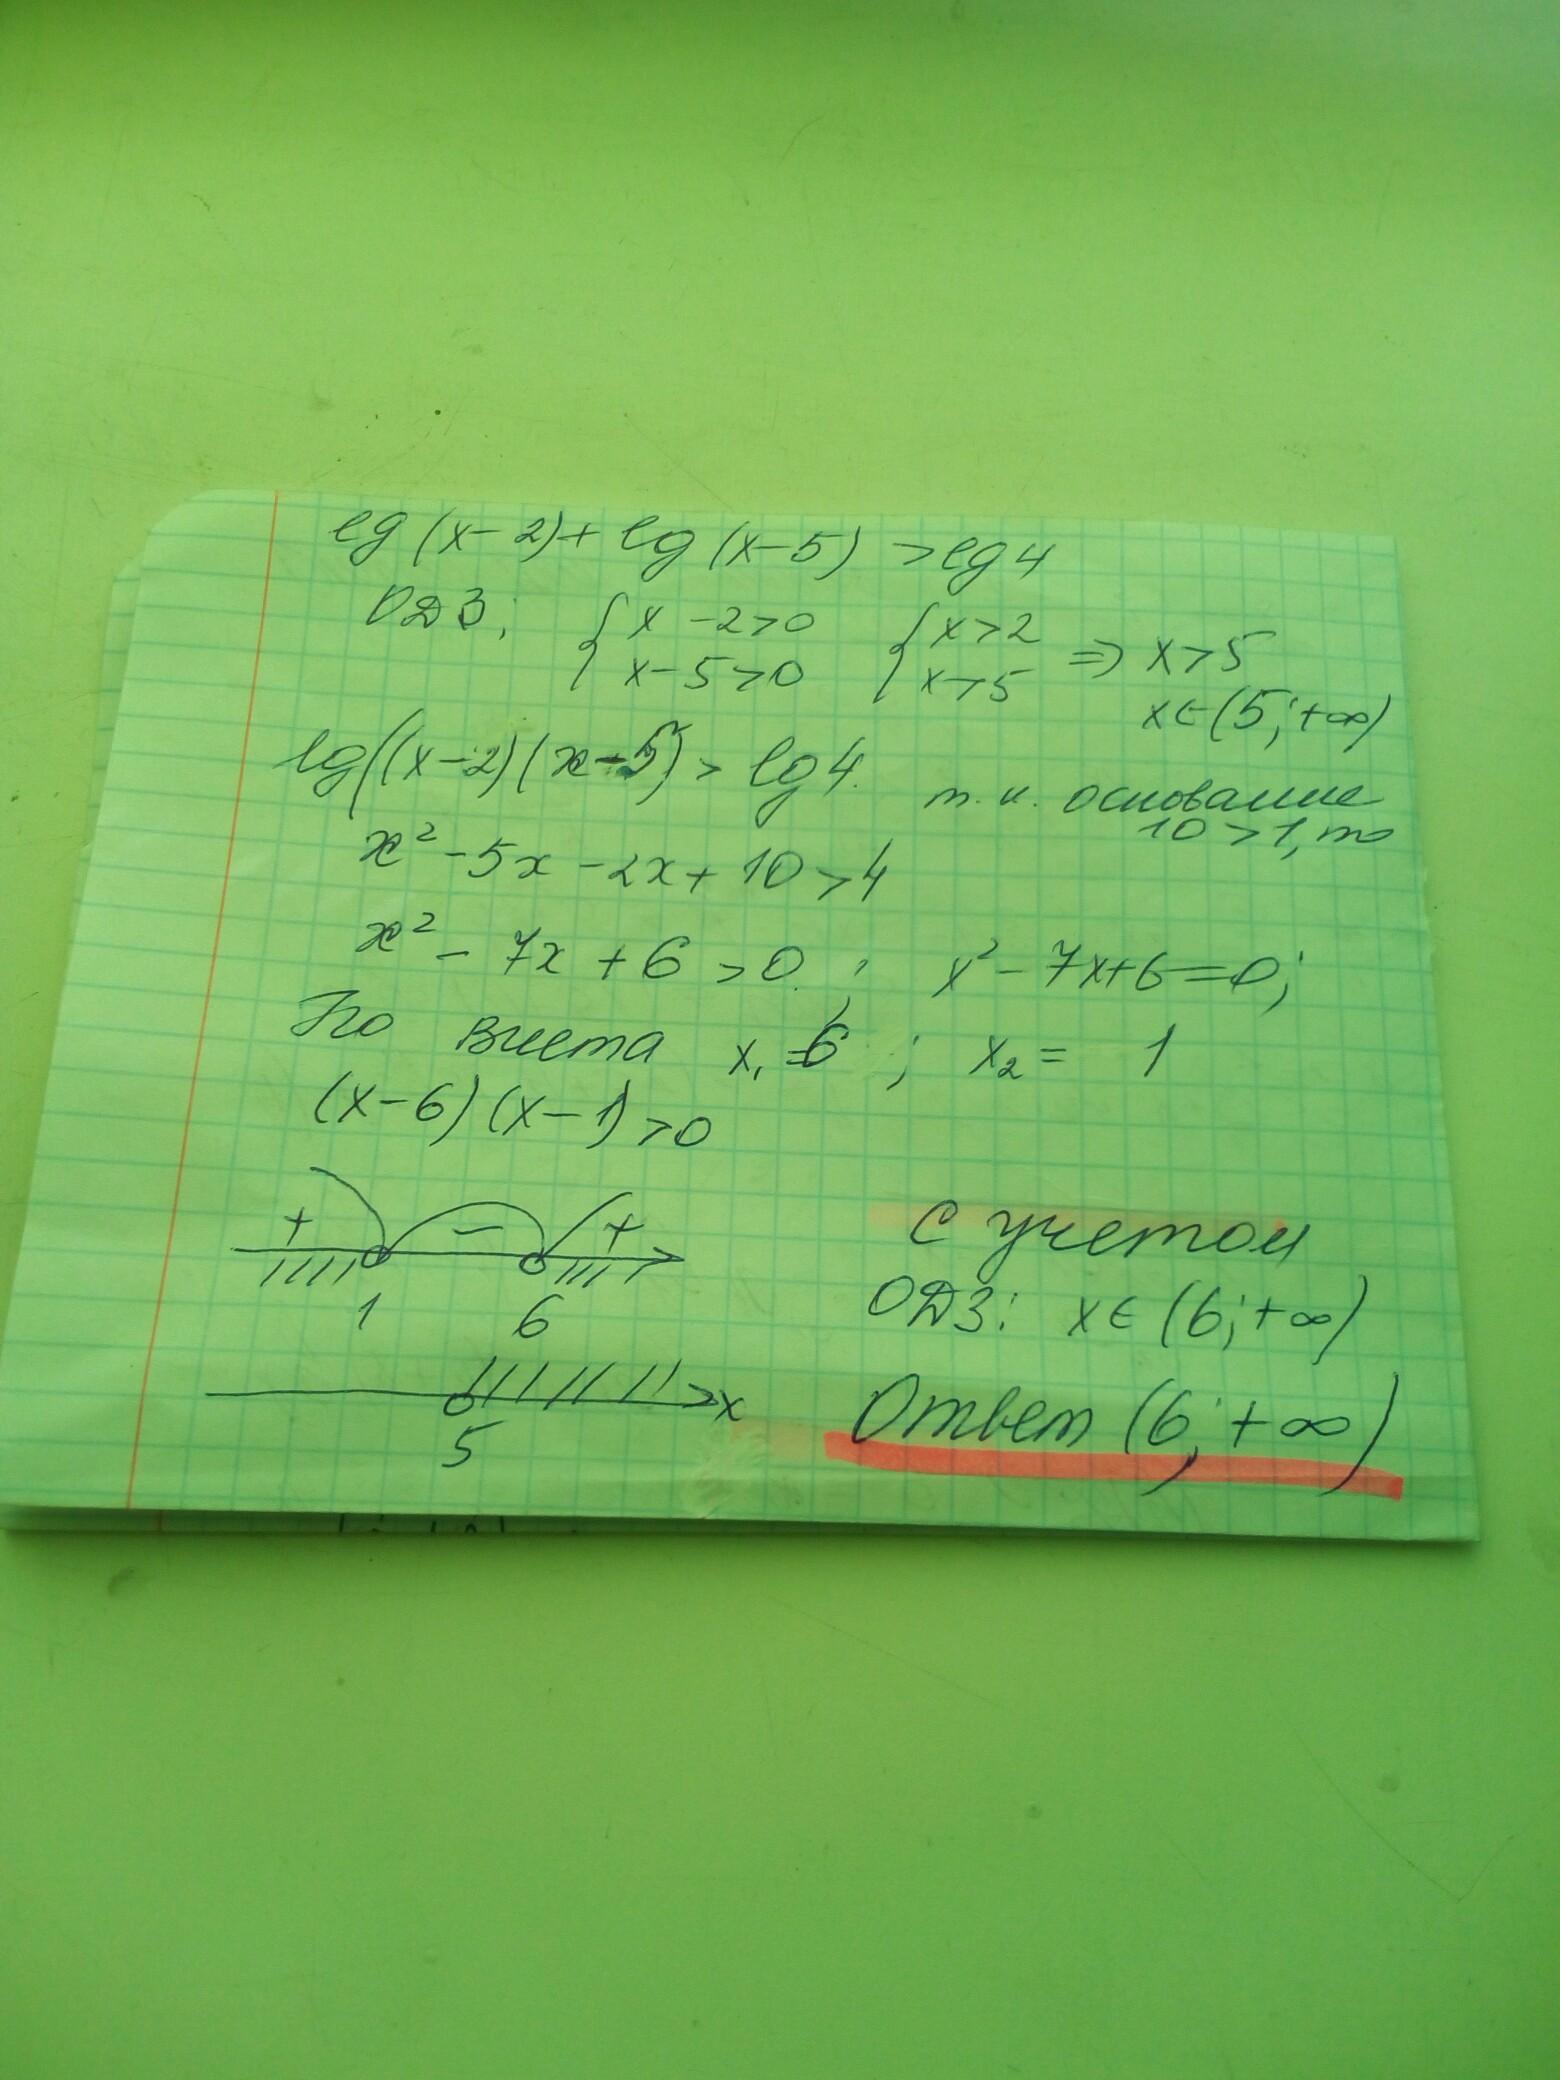 lg(x-2)+lg(x-5)>lg4
ОДЗ; { x-2>0 x-5>0 { x>2 x>5 => x>5
x∈(5;+∞)
lg((x-2)(x-5))> lg4. т.к. основание
10>1, то
x²-5x-2x+10>4
x²-7x+6>0; x²-7x+6=0;
По Виета x₁=6; x₂= 1
(x-6)(x-1)>0
+ - +
1 6
с учетом
ОДЗ: x∈(6;+∞)
x
5
Ответ (6;+∞)